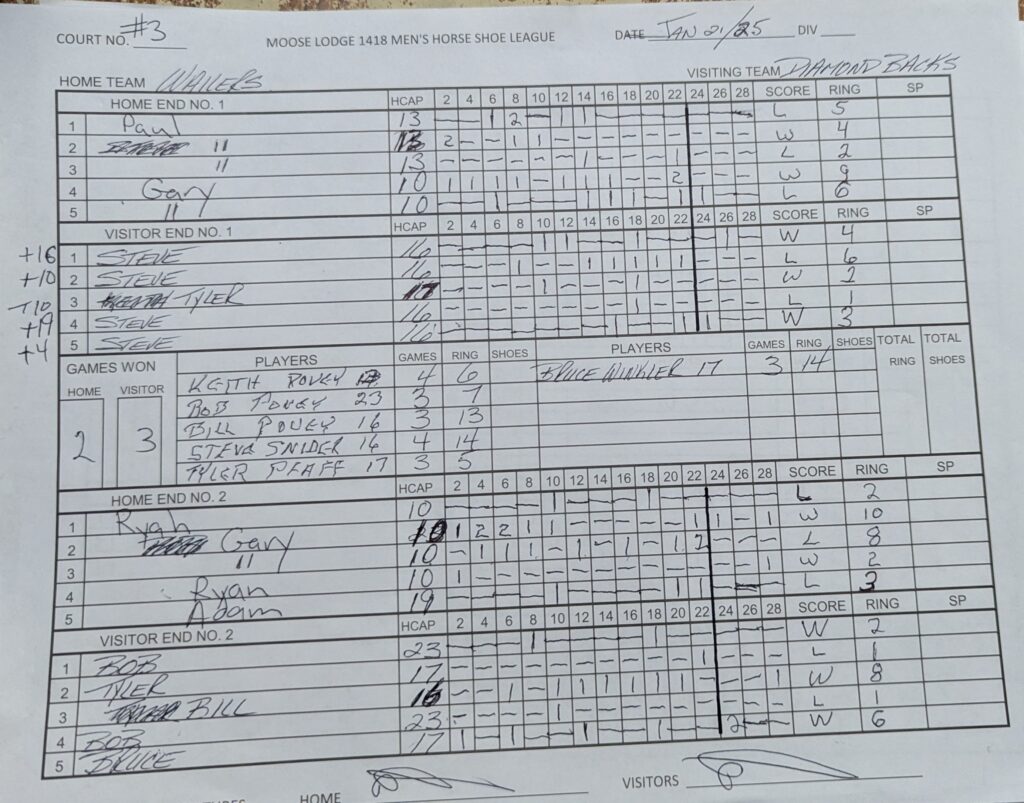 COURT NO. #3 MOOSE LODGE 1418 MEN'S HORSE SHOE LEAGUE DATE JAN 21/25 DIV
HOME TEAM WAILERS VISITING TEAM DIAMOND BACKS
HOME END NO. 1 HCAP 2 4 6 8 10 12 14 16 18 20 22 24 26 28 SCORE RING SP
1 Paul 13 – – 1 2 – 1 1 – – – – – – – L 5
2 " 13 2 – – 1 1 – – – – – – – – – W 4
3 " 13 – – – – – – 1 – – – 1 – – – L 2
4 Gary 10 1 1 1 1 – 1 1 1 – – 2 – – – W 9
5 " 10 – – 1 – – – 1 1 1 – 1 1 – – L 6
VISITOR END NO. 1 HCAP 2 4 6 8 10 12 14 16 18 20 22 24 26 28 SCORE RING SP
+16 1 STEVE 16 – – – – 1 1 – – 1 – – – 1 – W 4
+10 2 STEVE 16 – – – 1 – – 1 1 1 1 1 – – – L 6
3 TYLER 17 – – – – 1 – – – 1 – – – – – W 2
4 STEVE 16 – – – – – – – – 1 – – – – – L 1
+4 5 STEVE 16 – – – – – – – 1 – – 1 1 – – W 3
GAMES WON PLAYERS GAMES RING SHOES PLAYERS GAMES RING SHOES TOTAL RING TOTAL SHOES
HOME VISITOR
2 3
KEITH POVEY 4 6 BRUCE WINKLER 17 3 14
BOB POVEY 23 3 7
BILL POVEY 16 3 13
STEVE SNIDER 16 4 14
TYLER PFAFF 17 3 5
HOME END NO. 2 HCAP 2 4 6 8 10 12 14 16 18 20 22 24 26 28 SCORE RING SP
1 Ryan 10 – – – – 1 – – – 1 – – – – – L 2
2 Gary 10 1 2 2 1 1 – – – – – 1 1 – 1 W 10
3 " 10 – 1 1 1 – 1 – 1 – 1 2 – – – L 8
4 Ryan 10 1 – – – – – – – – – – – – 1 W 2
5 Adam 19 – – – – 1 – – – – 1 1 – – – L 3
VISITOR END NO. 2 HCAP 2 4 6 8 10 12 14 16 18 20 22 24 26 28 SCORE RING SP
1 BOB 23 – – – 1 – – – – 1 – – – – – W 2
2 TYLER 17 – – – – – – – – – – 1 – – – L 1
3 BILL 16 – – 1 – 1 1 1 1 1 1 – – – 1 W 8
4 BOB 23 – – – – 1 – – – – – – – – – L 1
5 BRUCE 17 1 – 1 – – 1 – – 1 – – 2 – – W 6
HOME VISITORS